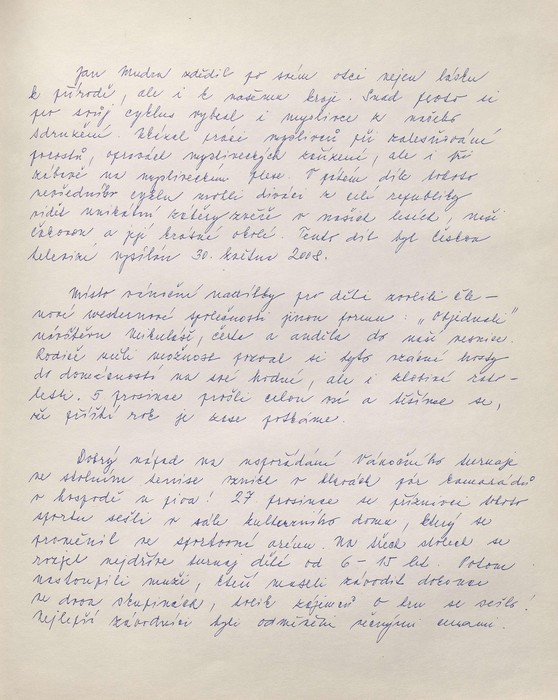 Jan Mudra zdědil po svém otci nejen lásku
k přírodě, ale i k našemu kraji. Snad proto si
pro svůj cyklus vybral i myslivce z našeho
sdružení. Ukázal práci myslivců při zalesňování
porostů, opravách mysliveckých zařízení, ale i při
zábavě na mysliveckém plese. V pátém díle tohoto
cyklu mohli diváci z celé republiky
vidět unikátní záběry zvěře v našich lesích, naši
a její krásné okolí. Tento díl byl Českou
televizí vysílán 30. května 2008.
Místo vánoční nadílky pro děti zvolili čle-
nové westernové společnosti jinou formu: „Objednali"
návštěvu Mikuláše, čerta a anděla do naší vesnice.
Rodiče měli možnost pozvat si tyto vzácné hosty
do domácností na své hodné, ale i zlobivé rato-
lesti. 5. prosince prošli celou ves a těšíme se,
že příští rok je zase potkáme.
Dobrý nápad na uspořádání Vánočního turnaje
ve stolním tenise vznikl v hlavách pár kamarádů
v hospodě u piva! 27. prosince se příznivci tohoto
sportu sešli v sále kulturního domu, který se
proměnil ve sportovní arénu. Na třech stolech se
rozjel nejdříve turnaj dětí od 6 - 15 let. Potom
nastoupili muži, kteří museli závodit dokonce
ve dvou skupinách, tolik zájemců o hru se sešlo!
Nejlepší závodníci byli odměněni věcnými cenami.